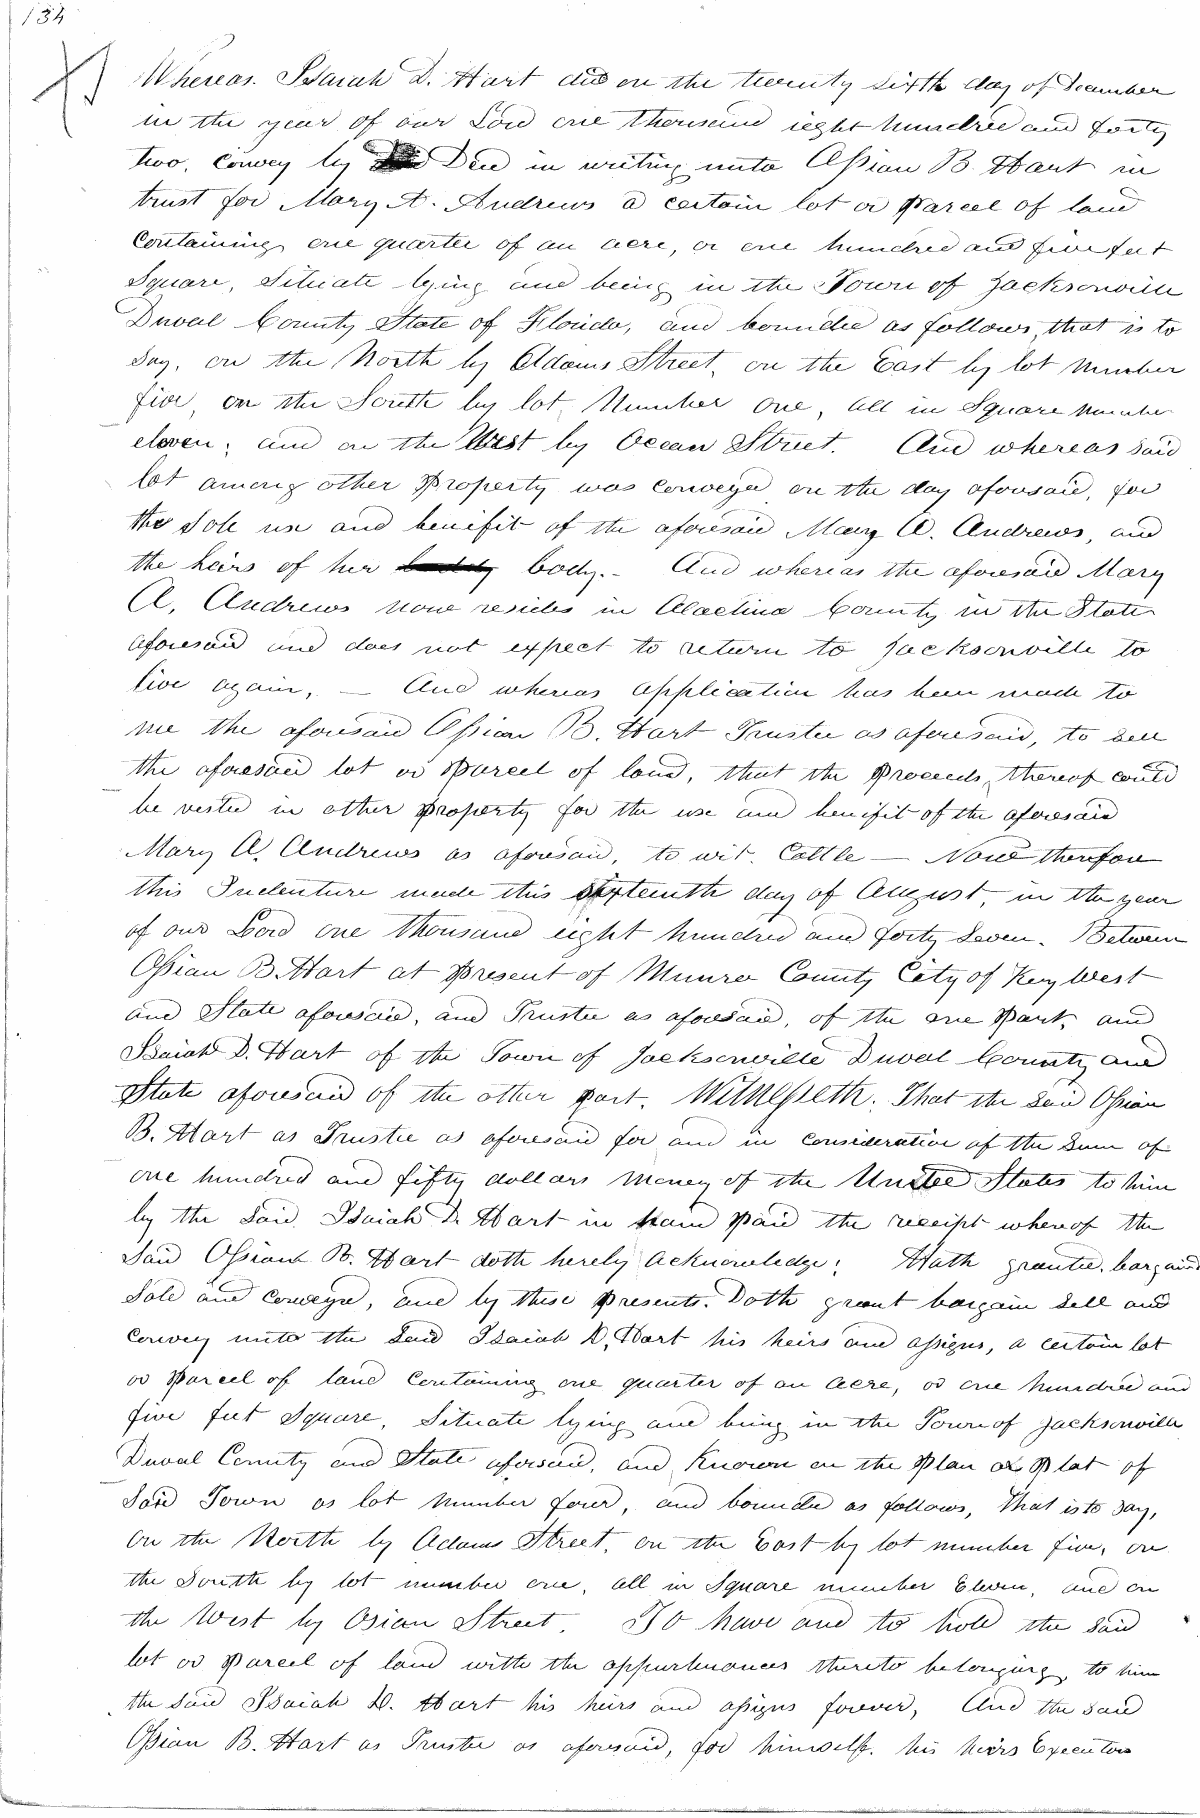 134
Whereas. Isaiah D. Hart did on the twenty sixth day of December
in the year of our Lord one thousand eight hundred and forty
two, convey by Deed in writing unto Ossian B. Hart in
trust for Mary A. Andrews a certain lot or parcel of land
Containing one quarter of an acre, or one hundred and five feet
Square, Situate lying and being in the Town of Jacksonville
Duval County State of Florida, and bounded as follows, that is to
say, on the North by Adams Street, on the East by lot number
five, on the South by lot Number one, all in Square number
eleven; and on the West by Ocean Street. And whereas said
lot among other Property was conveyed on the day aforesaid, for
the sole use and benifit of the aforesaid Mary A. Andrews, and
the heirs of her body.- And whereas the aforesaid Mary
A. Andrews now resides in Alachua County in the State
aforesaid and does not expect to return to Jacksonville to
live again, — And whereas application has been made to
me the aforesaid Ossian B. Hart Trustee as aforesaid, to sell
the aforesaid lot or Parcel of land, that the Proceeds, thereof could
be vested in other Property for the use and benifit of the aforesaid
Mary A. Andrews as aforesaid, to wit. Cattle — Now therefore
this Indenture made this sixteenth day of August, in the year
of our Lord one thousand eight hundred and forty seven. Between
Ossian B. Hart at Present of Munro County City of Key West
and State aforesaid, and Trustee as aforesaid, of the one Part, and
Isaiah D. Hart of the Town of Jacksonville Duval County and
State aforesaid of the other part. Witnesseth. That the said Ossian
B. Hart as Trustee as aforesaid for and in consideration of the Sum of
one hundred and fifty dollars money of the United States to him
by the said Isaiah D. Hart in hand paid the receipt whereof the
said Ossian B. Hart doth hereby acknowledge; Hath granted, bargained
Sold and conveyed, and by these presents. Doth grant bargain sell and
convey unto the said Isaiah D. Hart his heirs and assigns, a certain lot
or Parcel of land containing one quarter of an acre, or one hundred and
five feet square, Situate lying and being in the Town of Jacksonville
Duval County and State aforesaid, and known on the Plan or Plat of
Said Town as lot number four, and bounded as follows, That is to say,
on the North by Adams Street, on the East by lot number five, on
the South by lot number one, all in Square number Eleven, and on
the West by Osian Street. To have and to hold the said
lot or Parcel of land with the appurtenances thereto belonging, to him
the said Isaiah D. Hart his heirs and assigns forever, And the said
Ossian B. Hart as Trustee as aforesaid, for himself. his heirs Executors